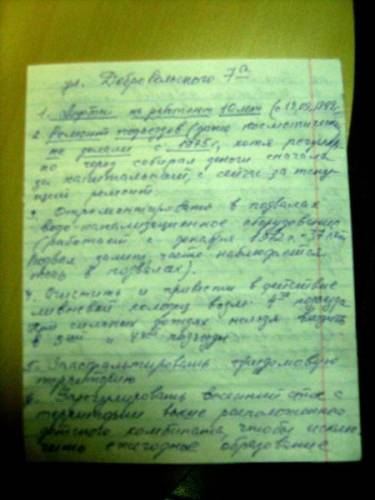 ул. Добровольского 7а
1. Лифты не работают 10 лет (с
2. Ремонт подъездов (даже косметический
не делали с 1975г, хотя регуляр
но череp собирал деньги сначала
за капитальный, а сейчас за теку
щий ремонт.
3. Отремонтировать в подвалах
водо-канализационное оборудование
(работает с декабря 1972 г. - 37 лет
подвал залит, часто наблюдается
в подвалах).
4. Очистить и привести в действие
ливневой колодец возле 4го подъезда
При сильных дождях нельзя выйти
в 3ий и 4ый подъезды
5. Заасфальтировать придомовую
территорию
6. Запроектировать весенний сток с
территории выше расположенного
детского комбината, чтобы исклю
чить ежегодное образование